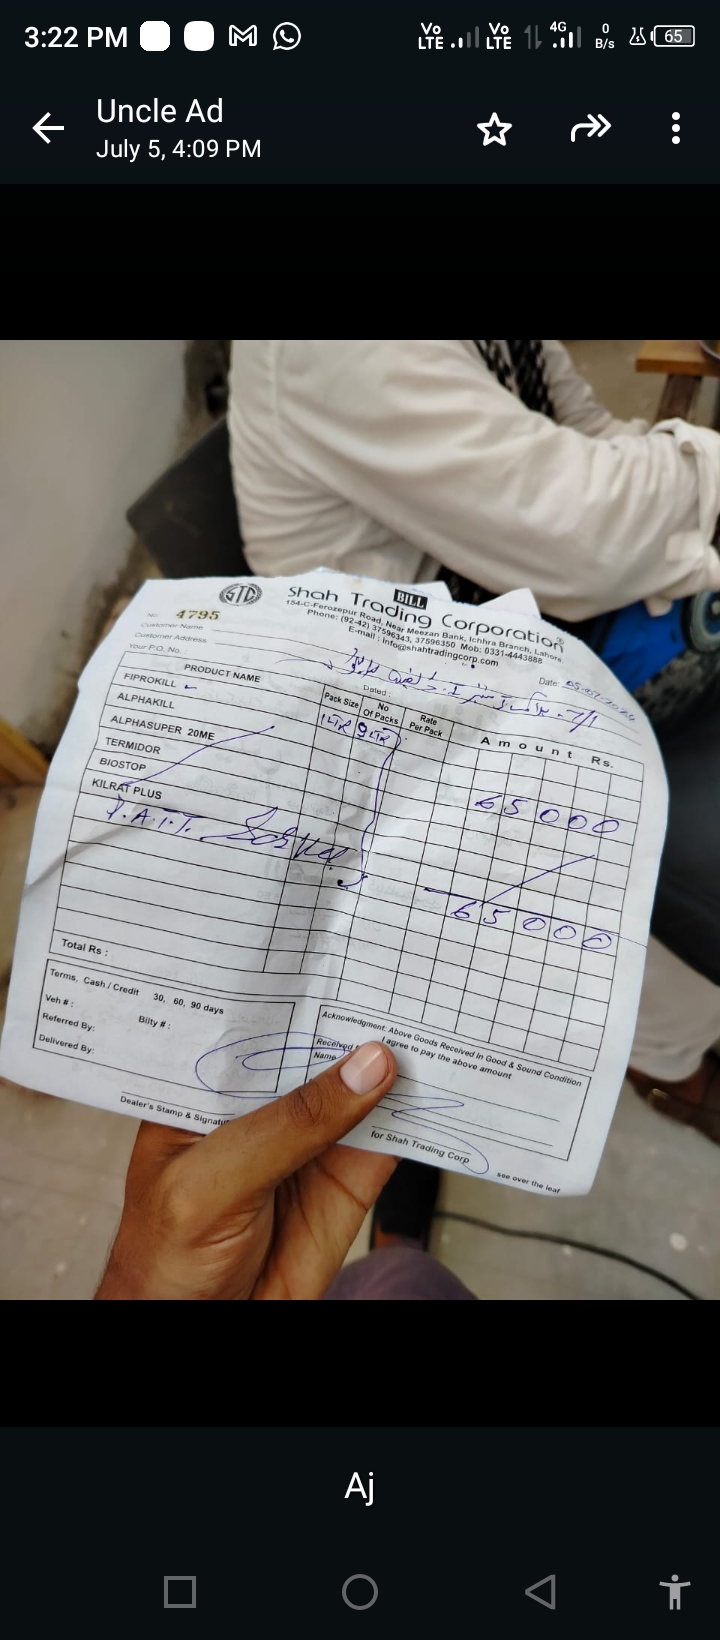 3:22 PM
Vo LTE Vo LTE 4G 0 B/s 65
Uncle Ad
July 5, 4:09 PM
STC
BILL
Shah Trading Corporation
154-C-Ferozepur Road, Near Meezan Bank, Ichhra Branch, Lahore
Phone: (92-42) 37596343, 37596350 Mob: 0331-4443888
E-mail : info@shahtradingcorp.com
No. 4795
Customer Name
Customer Address
Your P.O. No. :
Date:
Dated :
PRODUCT NAME
Pack Size
No Of Packs
Rate Per Pack
Amount Rs.
FIPROKILL 1 LTR 9 LTR
ALPHAKILL
ALPHASUPER 20ME
TERMIDOR
BIOSTOP
KILRAT PLUS
65000
65000
Total Rs :
Terms, Cash / Credit 30, 60, 90 days
Veh # :
Bilty # :
Referred By:
Delivered By:
Dealer's Stamp &
Acknowledgment: Above Goods Received in Good & Sound Condition
I agree to pay the above amount
Received
Name
for Shah Trading Corp
see over the leaf
Aj